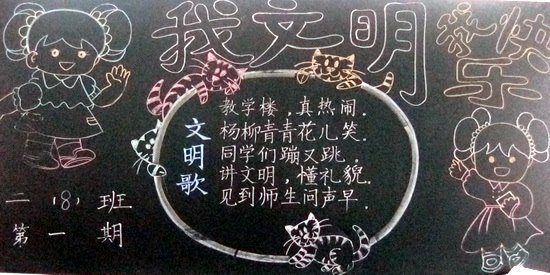 我文明 我快乐
文明歌
教学楼，真热闹。
杨柳青青花儿笑。
同学们蹦又跳，
讲文明，懂礼貌。
见到师生问声早。
二（8）班
第一期